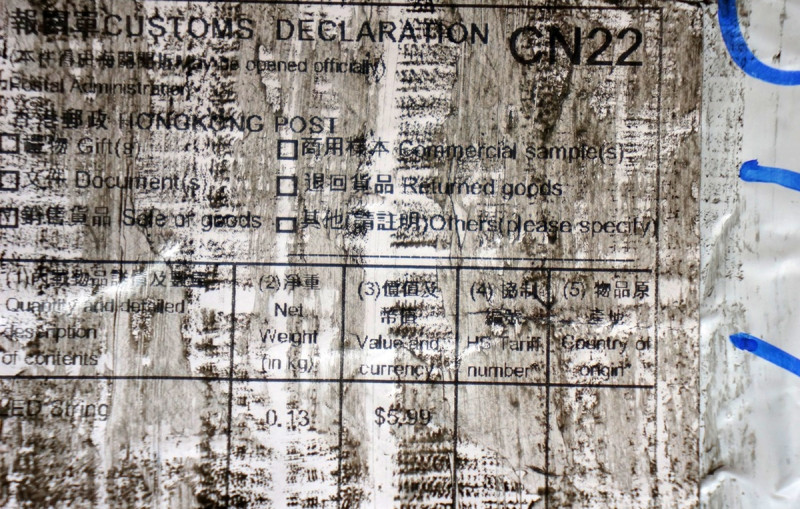 報關單CUSTOMS DECLARATION CN22
May be opened officially)
Postal Administration
香港郵政 HONGKONG POST
禮物 Gift(s) 商用樣本 Commercial sample(s)
文件 Document(s) 退回貨品 Returned goods
銷售貨品 Sale of goods 其他(請註明)Others(please specify)
(1)內載物品詳情及數量
Quantity and detailed
description
of contents
(2)淨重
Net
Weight
(in kg)
(3)價值及
幣值
Value and
currency
(4) 協制
編號
HS Tariff
number*
(5) 物品原
產地
Country of
origin*
LED String 0.13 $5.99